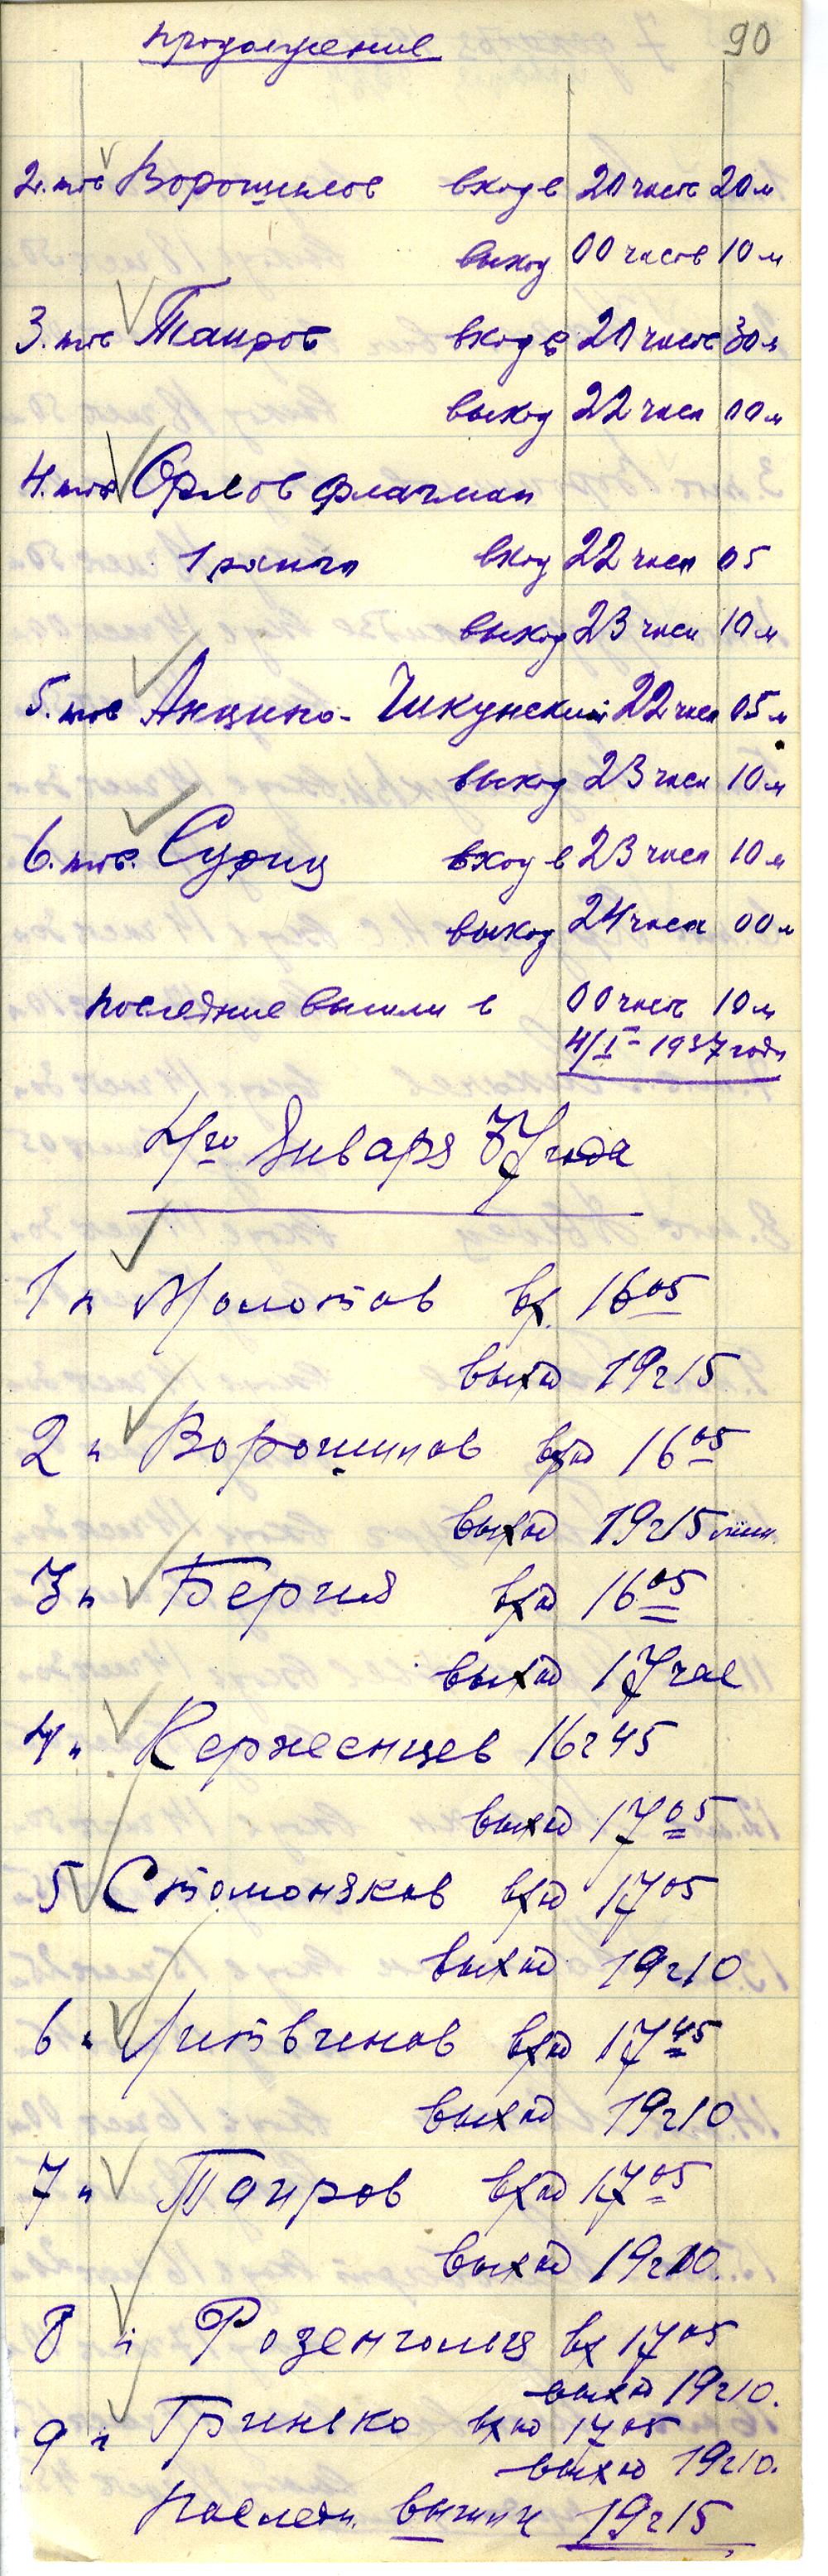 продолжение 90
2. тов Ворошилов вход в 20 часов 20 м
выход 00 часов 10 м
3. тов Таиров вход в 20 часов 30 м
выход 22 часа 00 м
4. тов Орлов флагман
1 ранга вход 22 часа 05
выход 23 часа 10 м
5. тов Анципо-Чикунский 22 часа 05 м
выход 23 часа 10 м
6. тов. Суриц вход в 23 часа 10 м
выход 24 часа 00 м
последние вышли в 00 часов 10 м
4/I-1937 года
4го Января 37 года
1 " Молотов вх. 16 05
выход 19 г 15
2 " Ворошилов вход 16 05
выход 19 г 15 мин.
3 " Берия вход 16 05
выход 17 час
4 " Керженцев 16 г 45
выход 17 05
5 Стомоняков вход 17 05
выход 19 г 10
6 " Литвинов вход 17 45
выход 19 г 10
7 " Таиров вход 17 05
выход 19 г 10.
8 " Розенгольц вх 17 05
выход 19 г 10.
9 " Гринько вход 17 05
выход 19 г 10.
Последн. вышли 19 г 15